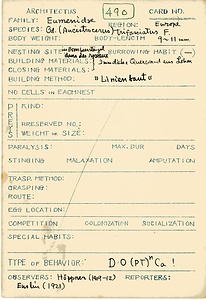 ARCHITECTUS 490 CARD NO.
FAMILY: Eumenidae REGION: Europe
SPECIES: Od. (Ancistrocerus) trifasciatus F.
BODY WEIGHT: BODY-LENGTH 9-11 mm
NESTING SITE: BURROWING HABIT (—)
BUILDING MATERIALS: aus Lehm
CLOSING MATERIALS:
BUILDING METHOD: "Linienbaut"
NO CELLS IN EACHNEST
PREY
KIND:
NR RESERVED NO.:
WEIGHT OR SIZE:
PARALYSIS: MAX. DUR DAYS
STINGING MALAXATION AMPUTATION
TRASP. METHOD:
GRASPING:
ROUTE:
EGG LOCATION:
COMPETITION COLONIZATION SOCIALIZATION
SPECIAL HABITS:
TYPE OF BEHAVIOR: D·O(PT)ⁿ Ca!
OBSERVERS: Höppner (1909-12) REPORTERS:
Enslin (1921)